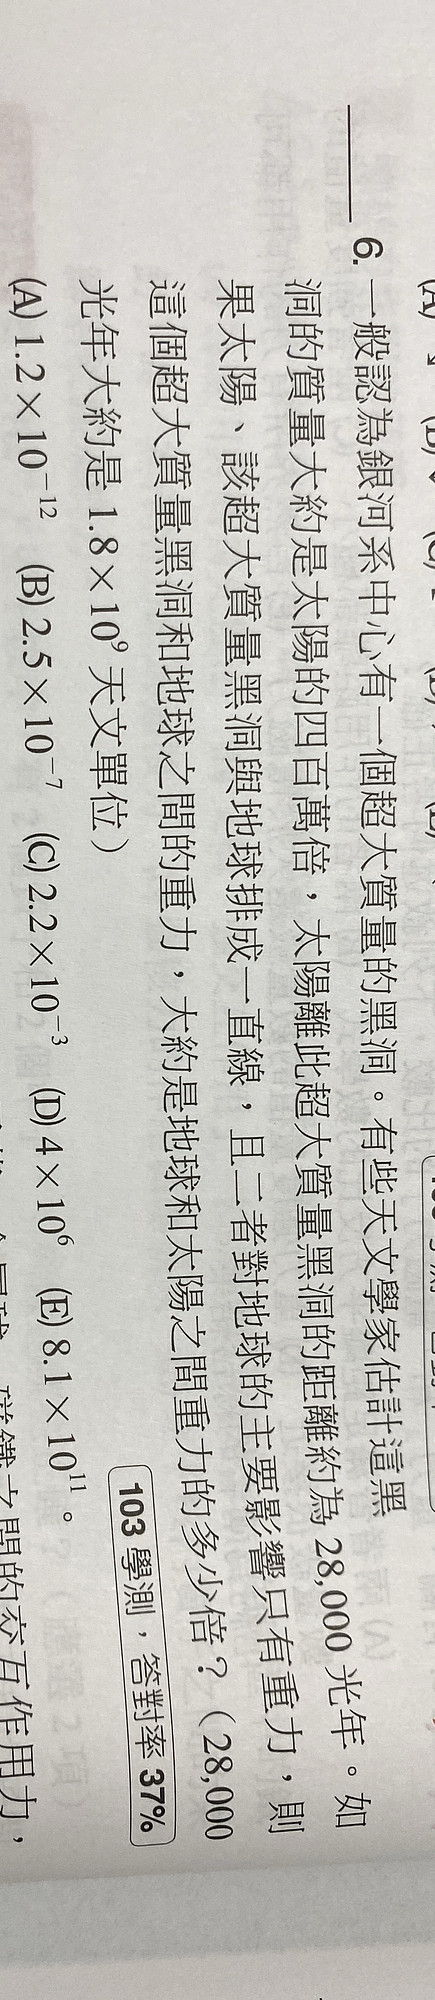 6. 一般認為銀河系中心有一個超大質量的黑洞。有些天文學家估計這黑
洞的質量大約是太陽的四百萬倍，太陽離此超大質量黑洞的距離約為 28,000 光年。如
果太陽、該超大質量黑洞與地球排成一直線，且二者對地球的主要影響只有重力，則
這個超大質量黑洞和地球之間的重力，大約是地球和太陽之間重力的多少倍？（28,000
光年大約是 1.8×10⁹ 天文單位）
103 學測，答對率 37%
(A) 1.2×10⁻¹² (B) 2.5×10⁻⁷ (C) 2.2×10⁻³ (D) 4×10⁶ (E) 8.1×10¹¹。
磁鐵之間的交互作用力，